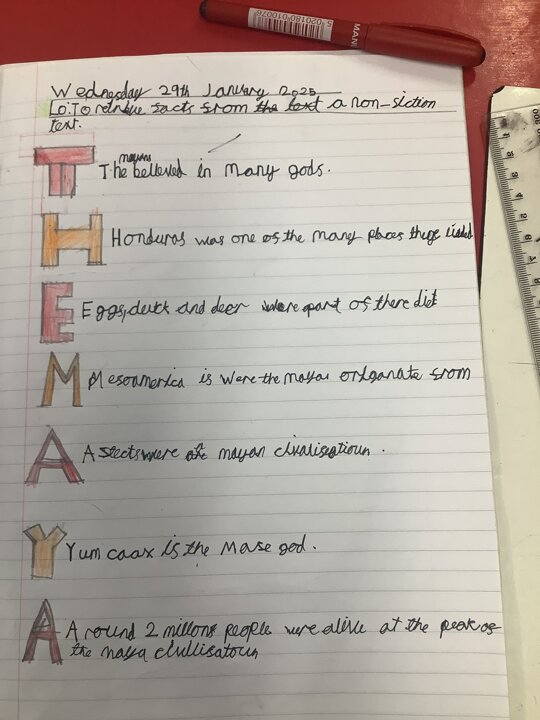 MAN
5 020180 010076
Wednesday 29th January 2025
LO:To retrieve facts from the text a non-fiction
text.
T The mayans believed in many gods.
H Honduras was one of the many places they lived
E Eggs, duck and deer were part of there diet
M Mesoamerica is were the mayas origanate from
A Aztects were a mayan civalisatioun.
Y Yum caax is the Mase god.
A Around 2 millons people were alive at the peak of
the maya civillisatoun